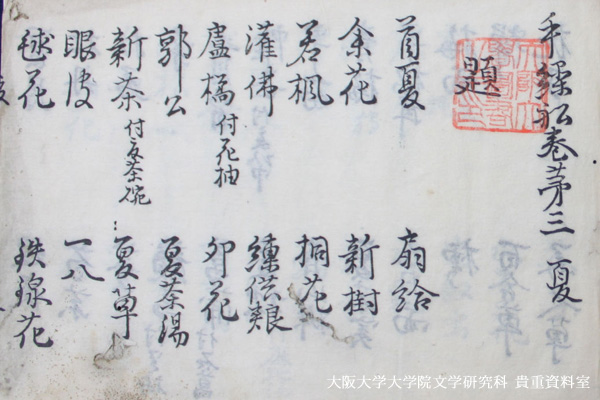 手繰舩巻第三 夏
題
首夏 扇給
余花 新樹
若楓 桐花
灌佛 練供養
盧橘 付花柚 卯花
郭公 夏茶湯
新茶 付 茶碗 夏草
眼皮 一八
毬花 鉄線花
大阪大学大学院文学研究科 貴重資料室